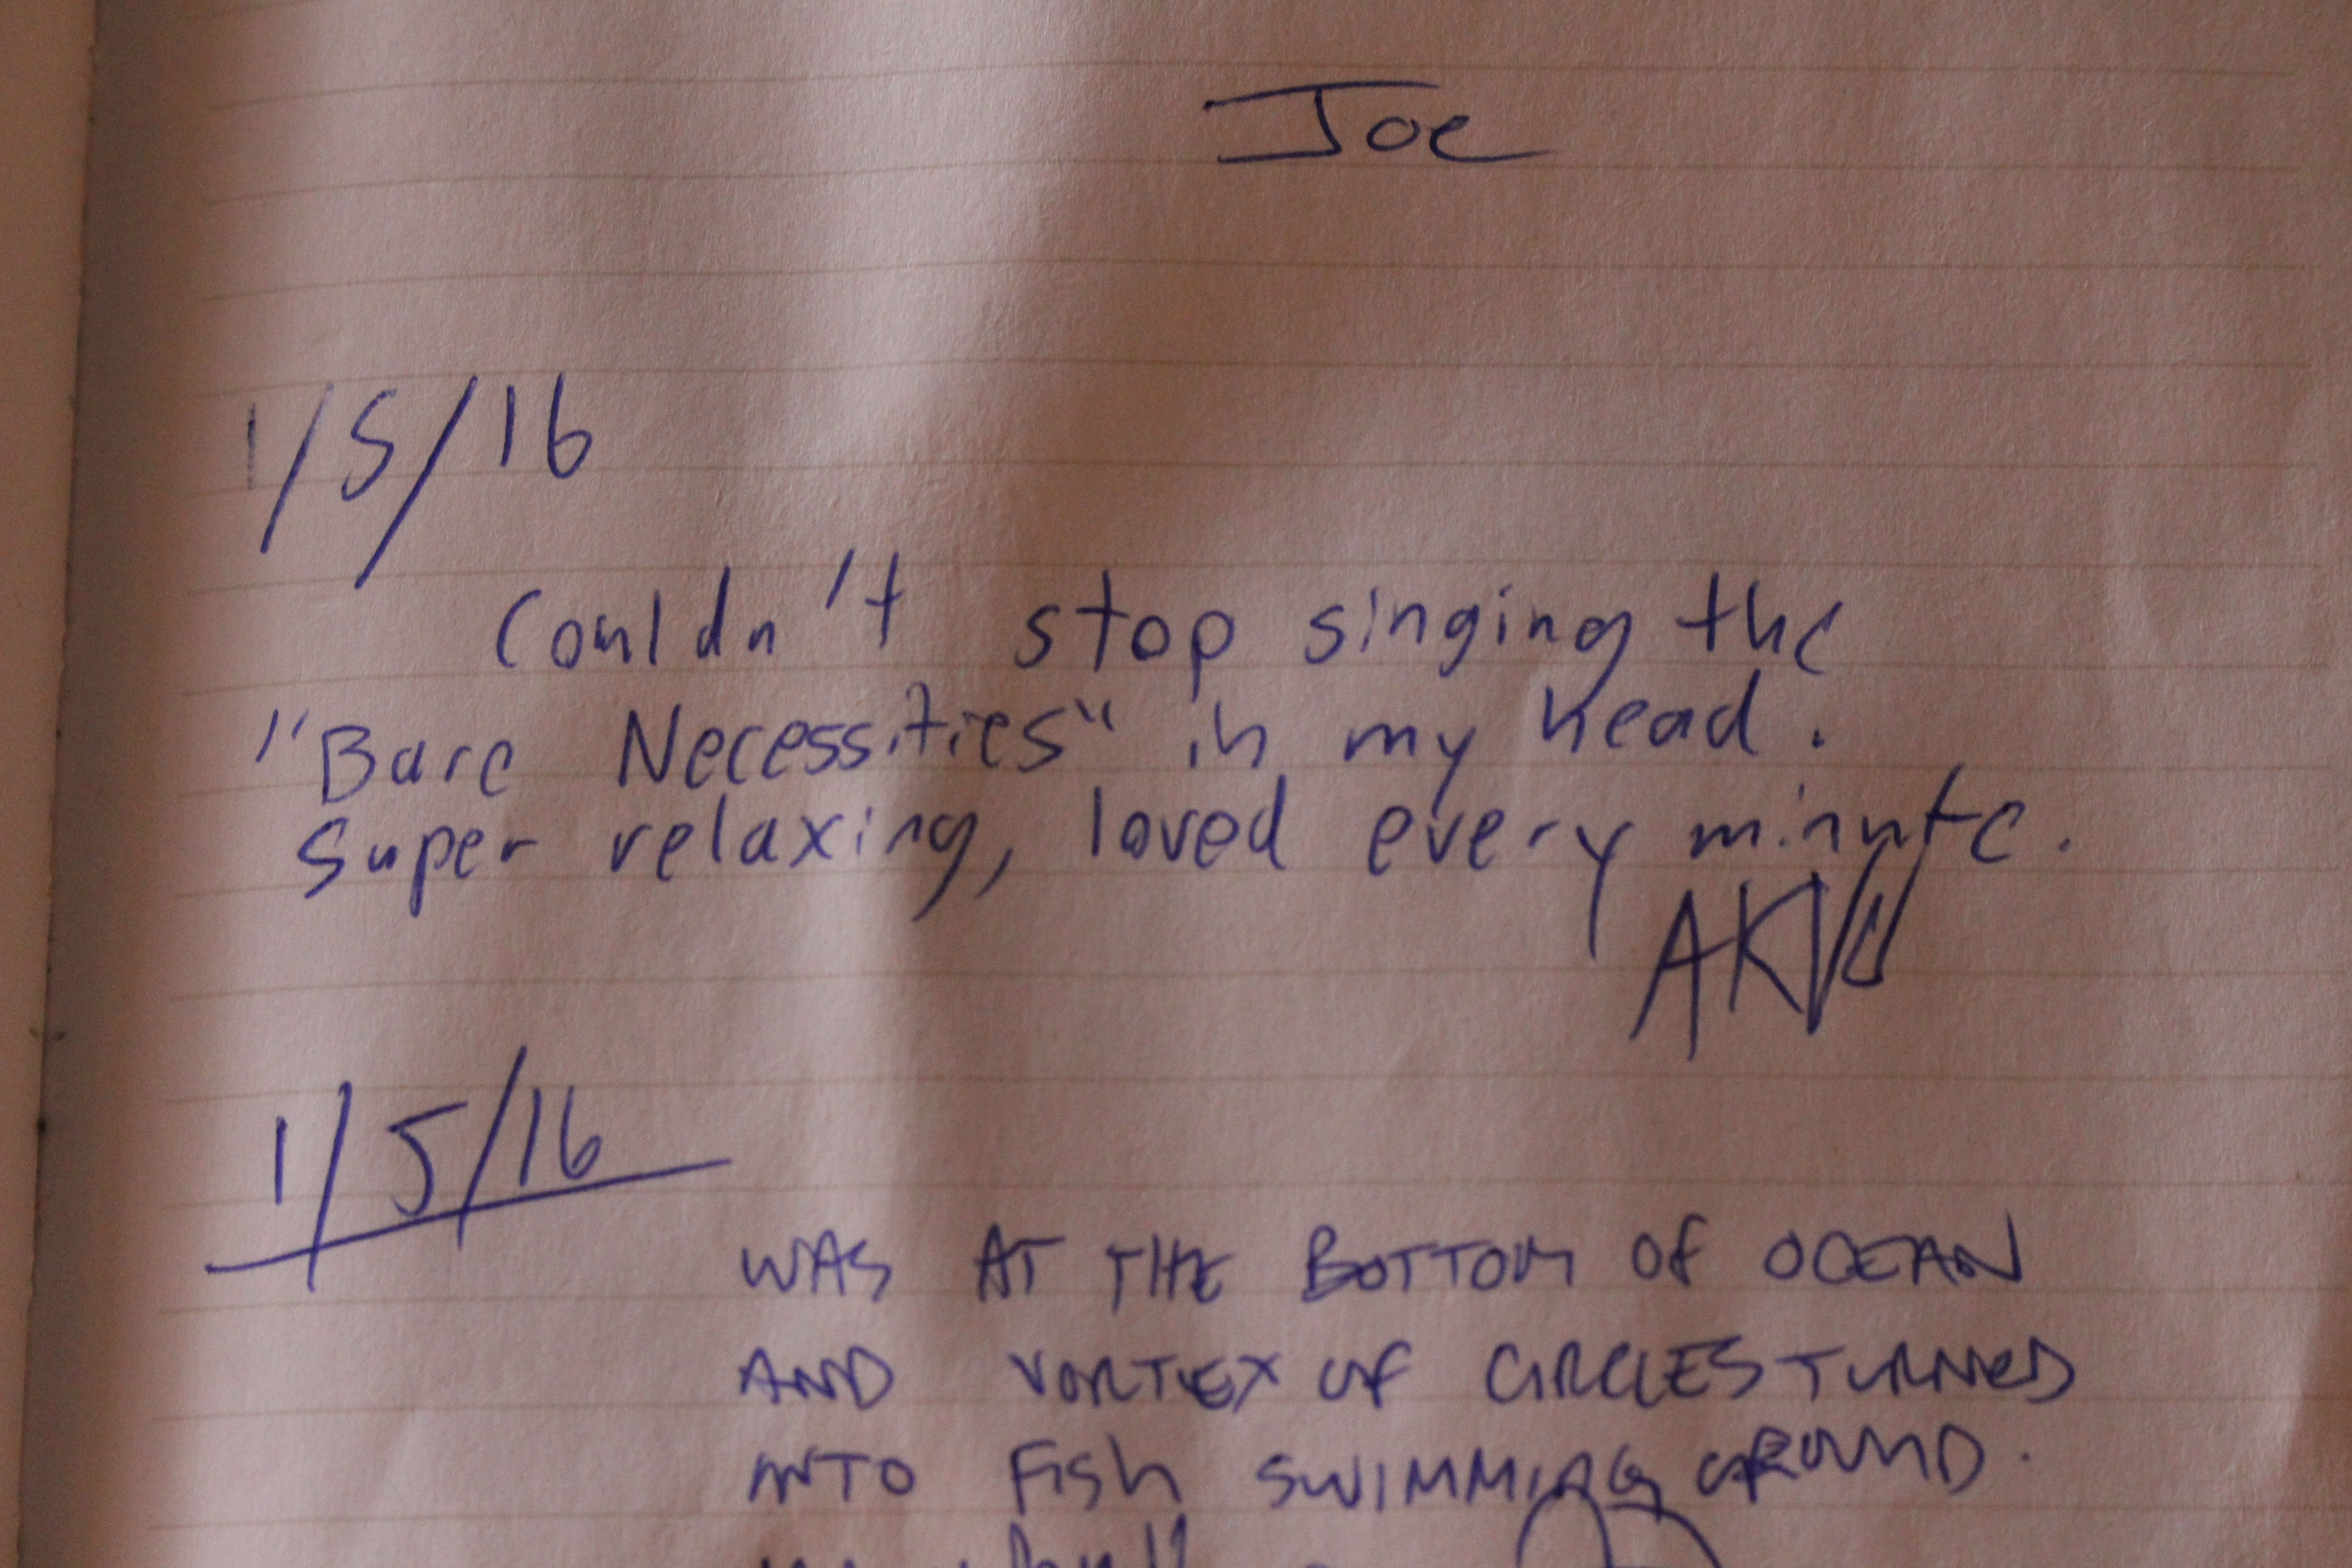 Joe
1/5/16
Couldn't stop singing the
"Bare Necessities" in my head.
Super relaxing, loved every minute.
1/5/16
WAS AT THE BOTTOM OF OCEAN
AND VORTEX OF CIRCLES TURNED
INTO FISH SWIMMING AROUND.